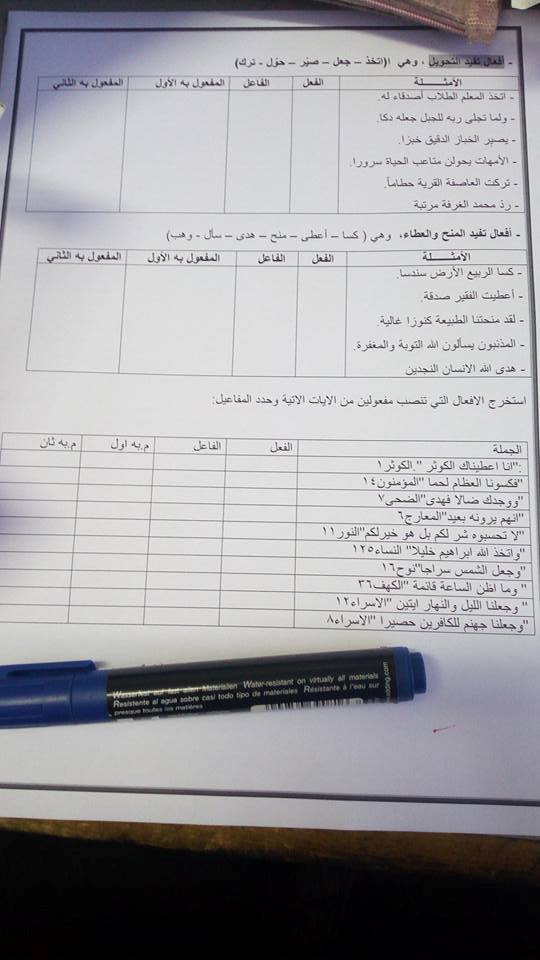 - أفعال تفيد التحويل ، وهي ا(اتخذ – جعل – صيّر – حوّل - ترك)
الأمثـــلة الفعل الفاعل المفعول به الأول المفعول به الثاني
- اتخذ المعلم الطلاب أصدقاء له.
- ولما تجلى ربه للجبل جعله دكا.
- يصير الخباز الدقيق خبزا.
- الأمهات يحولن متاعب الحياة سرورا.
- تركت العاصفة القرية حطاماً.
- ردّ محمد الغرفة مرتبة
- أفعال تفيد المنح والعطاء، وهي ( كسا – أعطى – منح – هدى – سأل - وهب)
الأمثـــلة الفعل الفاعل المفعول به الأول المفعول به الثاني
- كسا الربيع الأرض سندسا.
- أعطيت الفقير صدقة.
- لقد منحتنا الطبيعة كنوزا غالية.
- المذنبون يسألون الله التوبة والمغفرة.
- هدى الله الانسان النجدين
استخرج الافعال التي تنصب مفعولين من الايات الاتية وحدد المفاعيل:
الجملة الفعل الفاعل م.به اول م.به ثان
:"انا اعطيناك الكوثر ".الكوثر١
"فكسونا العظام لحما "المؤمنون١٤
"ووجدك ضالا فهدى"الضحى٧
"انهم يرونه بعيد"المعارج٦
"لا تحسبوه شر لكم بل هو خيرلكم"النور١١
"واتخذ الله ابراهيم خليلا" النساء١٢٥
"وجعل الشمس سراجا"نوح١٦
" وما اظن الساعة قائمة "الكهف٣٦
" وجعلنا الليل والنهار ايتين "الاسراء١٢
"وجعلنا جهنم للكافرين حصيرا "الاسراء٨
Wasserfest auf fast allen Materialien Water-resistant on virtually all materials
Resistente al agua sobre casi todo tipo de materiales Résistante à l'eau sur
presque toutes les matières